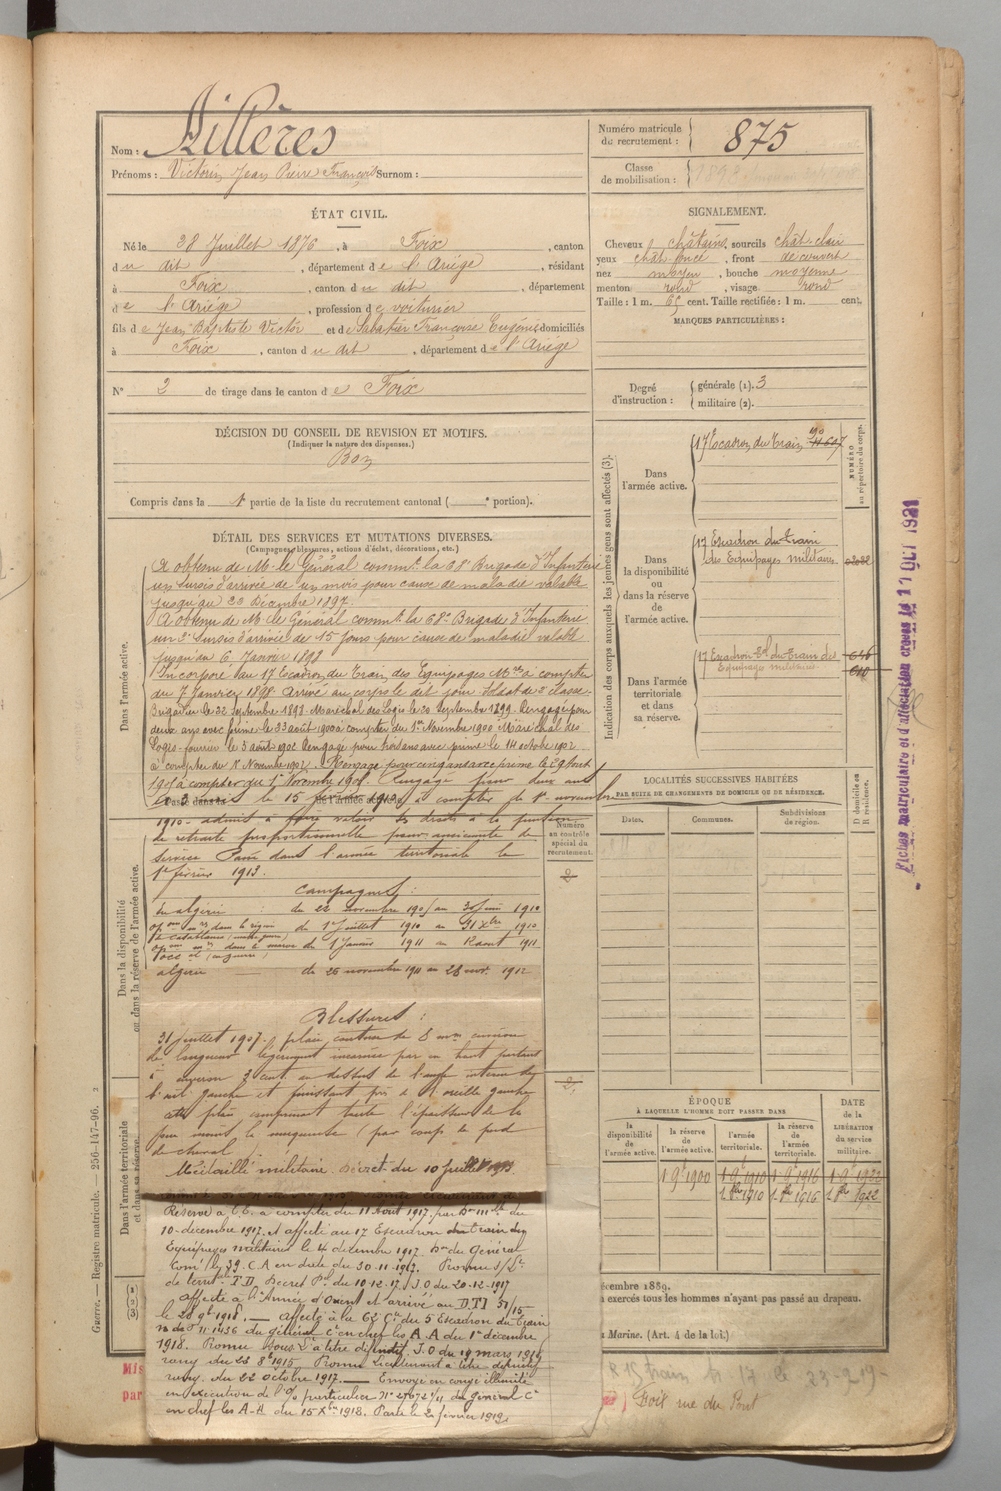 Nom : Aillères
Prénoms : Victorin Jean Pierre François Surnom :
Numéro matricule du recrutement : 875
Classe de mobilisation : 1898
ÉTAT CIVIL.
Né le 28 Juillet 1876, à Foix, canton
du dit, département de l'Ariége, résidant
à Foix, canton du dit, département
de l'Ariége, profession de voiturier
fils de Jean Baptiste Victor et de Sabatier Françoise Eugénie domiciliés
à Foix, canton du dit, département de l'Ariége
N° 2 de tirage dans le canton de Foix
SIGNALEMENT.
Cheveux châtains, sourcils chât-clair
yeux chât foncé, front découvert
nez moyen, bouche moyenne
menton rond, visage rond
Taille : 1 m. 65 cent. Taille rectifiée : 1 m. cent.
MARQUES PARTICULIÈRES :
Degré d'instruction : générale (1). 3
militaire (2).
DÉCISION DU CONSEIL DE REVISION ET MOTIFS.
(Indiquer la nature des dispenses.)
Bon
Compris dans la 1e partie de la liste du recrutement cantonal ( e portion).
Indication des corps auxquels les jeunes gens sont affectés (3).
NUMÉRO au répertoire du corps.
Dans l'armée active.
17 Escadron du Train
Dans la disponibilité ou dans la réserve de l'armée active.
17 Escadron du train
des Equipages militaires
Dans l'armée territoriale et dans sa réserve.
17 Escadron Tal du Train des
Equipages militaires
DÉTAIL DES SERVICES ET MUTATIONS DIVERSES.
(Campagnes, blessures, actions d'éclat, décorations, etc.)
Dans l'armée active.
A obtenu de M. le Général commt la 68e Brigade d'Infanterie
un sursis d'arrivée de un mois pour cause de maladie valable
jusqu'au 23 Décembre 1897.
A obtenu de M. le Général commt la 68e Brigade d'Infanterie
un 2e Sursis d'arrivée de 15 jours pour cause de maladie valable
jusqu'au 6 Janvier 1898
Incorporé au 17 Escadron du Train des Equipages Mres à compter
du 7 Janvier 1898. Arrivé au corps le dit jour soldat de 2e classe.
Brigadier le 22 septembre 1898. Maréchal des Logis le 20 septembre 1899. Rengagé pour
deux ans avec prime le 23 août 1900 à compter du 1er Novembre 1900 Maréchal des
Logis-fourrier le 5 août 1902 Rengagé pour trois ans avec prime le 14 octobre 1902
à compter du 1er Novembre 1902. Rengagé pour cinq ans avec prime le
à compter du 1er Novembre 1905. Rengagé pour deux ans
le 15 1910 à compter du 1er novembre
1910 - admis à faire valoir ses droits à la pension
de retraite proportionnelle pour ancienneté de
service Passé dans l'armée territoriale le
1er février 1913.
Dans la disponibilité ou dans la réserve de l'armée active.
Campagnes :
du 22 novembre au 30 juin 1910
du 1er juillet 1910 au 31 Xbre 1910
du 1 Janvier 1911 au août 1911
algérie de 26 novembre 1911 au 1912
Blessures :
31 juillet 1907. plaie contuse de 8 environ
de longueur légèrement incurvée par en haut partant
à environ 3 cent. au dessus de l'angle interne de
l'œil gauche et finissant près de l'oreille gauche
cette plaie comprenant toute l'épaisseur de la
peau (par coup de pied
de cheval
Médaille militaire. Décret du 10 juillet
Dans l'armée territoriale et dans sa réserve.
Réserve à T.T. à compter du 11 Août 1917. par Dn mlle du
10-décembre 1917. et affecté au 17 Escadron du train des
Equipages militaires le 4 décembre 1917. Dn du Général
Comt le 39. C.A en date du 30-11-1917. Promu s/Lt
de territ. T.D. Décret Pel du 10.12.17. J.O du 20-12-1917
affecté à l'Armée d'Orient et arrivé au D.T.I
le 28 9bre 1918. — affecté à la 62 Cie du 5 Escadron du train
N de S 11.1436 du général Ct en chef les A.A du 1er décembre
1918. Promu Sous Lt à titre définitif. J.O du 19 mars 1919
rang du 23 8bre 1915 Promu Lieutenant à titre définitif
rang. du 22 Octobre 1917. — Envoyé en congé illimité
en exécution de l'O/ particulier N° du Général Ct
en chef les A-A du 15 Xbre 1918. Parti le 2 février 1919.
LOCALITÉS SUCCESSIVES HABITÉES
PAR SUITE DE CHANGEMENTS DE DOMICILE OU DE RÉSIDENCE.
Numéro au contrôle spécial du recrutement.
Dates.
Communes.
Subdivisions de région.
D domicile ou R résidence.
ÉPOQUE
À LAQUELLE L'HOMME DOIT PASSER DANS
la disponibilité de l'armée active.
la réserve de l'armée active.
l'armée territoriale.
la réserve de l'armée territoriale.
DATE de la LIBÉRATION du service militaire.
1 9e 1900
1 9e 1910
1 9e 1916
1 9e 1922
1. 8bre 1910
1. 8bre 1916
1. 8bre 1922
écembre 1889.
exercés tous les hommes n'ayant pas passé au drapeau.
Marine. (Art. 4 de la loi.)
Foix rue du Pont
Guerre. — Registre matricule. — 256-147-96.
Mis
par
Fiches matriculaire et d'affectation créées le 1921